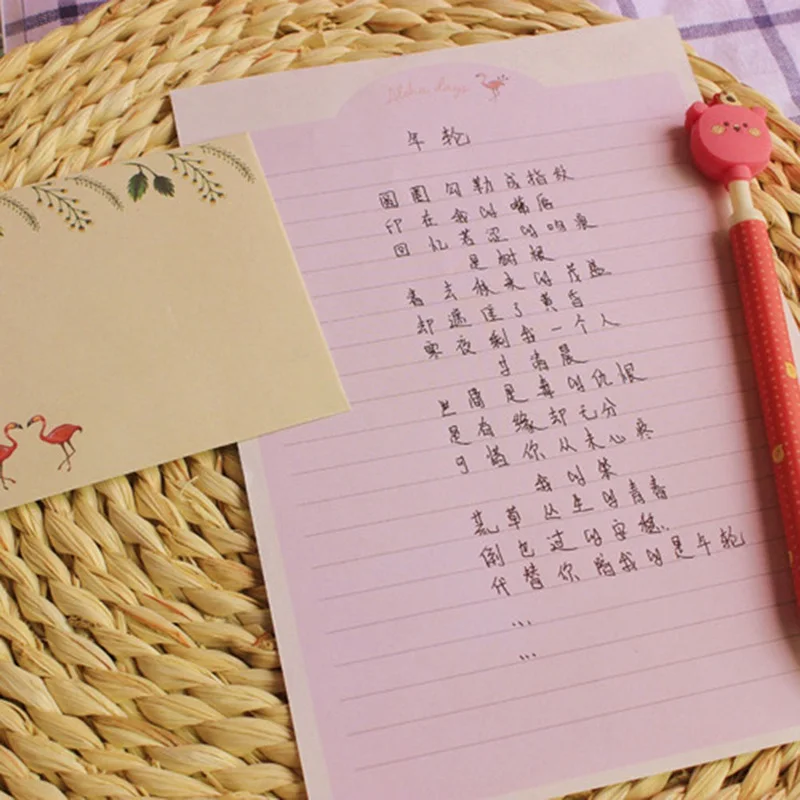 Aloha days
年轮
圆圈勾勒成指纹
印在我的嘴唇
回忆苦涩的吻痕
是树根
春去秋来的茂盛
却遮住了黄昏
寒夜剩我一个人
等清晨
世间最毒的仇恨
是有缘却无分
可惜你从未心疼
我的笨
荒草丛生的青春
倒也过的安稳
代替你陪我的是年轮
...
...